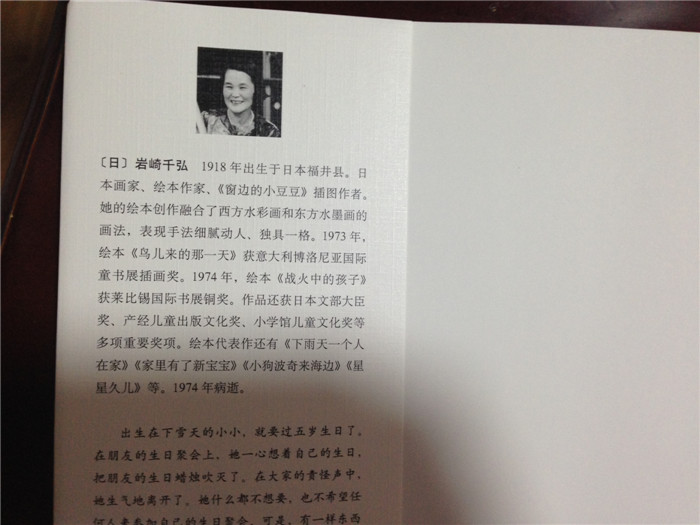 〔日〕岩崎千弘　1918 年出生于日本福井县。日
本画家、绘本作家、《窗边的小豆豆》插图作者。
她的绘本创作融合了西方水彩画和东方水墨画的
画法，表现手法细腻动人、独具一格。1973 年，
绘本《鸟儿来的那一天》获意大利博洛尼亚国际
童书展插画奖。1974 年，绘本《战火中的孩子》
获莱比锡国际书展铜奖。作品还获日本文部大臣
奖、产经儿童出版文化奖、小学馆儿童文化奖等
多项重要奖项。绘本代表作还有《下雨天一个人
在家》《家里有了新宝宝》《小狗波奇来海边》《星
星久儿》等。1974 年病逝。
出生在下雪天的小小，就要过五岁生日了。
在朋友的生日聚会上，她一心想着自己的生日，
把朋友的生日蜡烛吹灭了。在大家的责怪声中，
她生气地离开了。她什么都不想要，也不希望任
何人来参加自己的生日聚会，可是，有一样东西